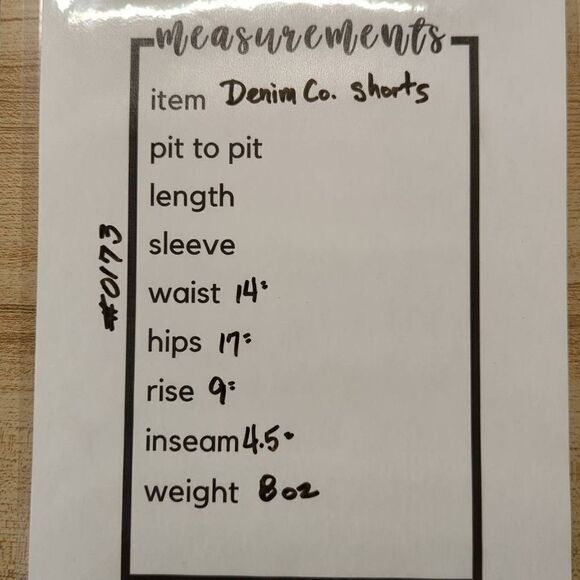 measurements
item Denim Co. shorts
pit to pit
length
sleeve
waist 14"
hips 17"
rise 9"
inseam 4.5"
weight 8oz
#0173